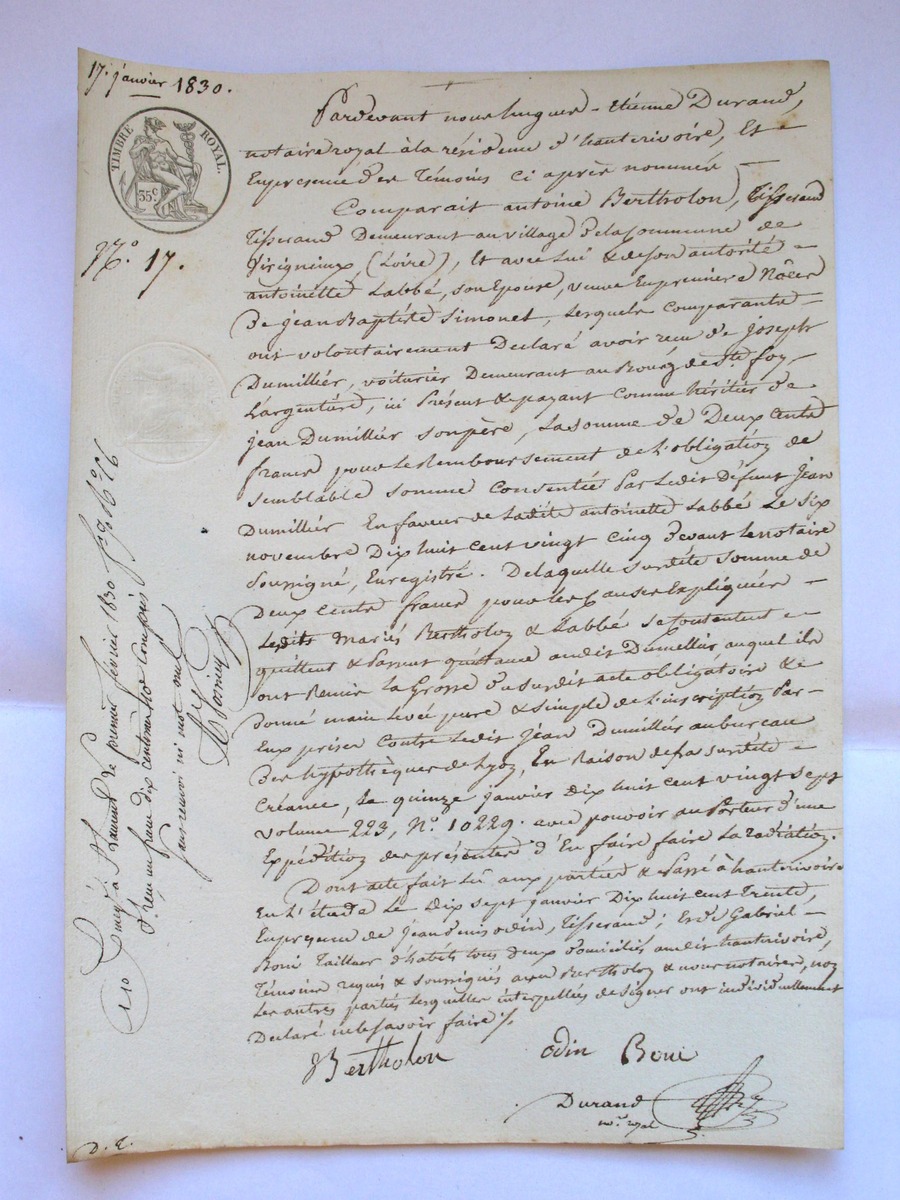 17. janvier 1830.
TIMBRE ROYAL.
35 c
N.o 17.
Pardevant nous hugues-Etienne Durand,
notaire royal à la résidence d'hauterivoire, Et
En presence des Témoins ci après nommés
Comparait antoine Bertholon, Tisserand
Tisserand Demeurant au village & de la Commune de
Virigneux, (Loire), Et avec Lui & de son autorité
antoinette Labbé, son Epouse, veuve En premiere Nôces
De jean Baptiste Simonet, Lesquels Comparants
ont volontairement Declaré avoir recu de joseph
Dumillier, voiturier Demeurant au Bourg de ste. foy
L'argentiere, ici Présent & payant Comme héritier de
jean Dumillier son père, La somme de Deux Cents
francs pour Le Remboursement de L'obligation de
semblable somme Consentie Par Ledit Défunt jean
Dumillier En faveur de Ladite antoinette Labbé Le six
novembre Dix huit cent vingt cinq devant Le notaire
soussigné, Enregistré. De laquelle susdite somme de
Deux Cents francs pour les Causes Expliquées
Ledits Mariés Bertholon & Labbé se Contentent
quittent & Passent quittance audit Dumillier auquel ils
ont Remis La Grosse du susdit acte obligatoire &
Donné main Levée pure & simple de L'inscription Par
Eux prise Contre Ledit jean Dumillier au bureau
Des hypothèques de Lyon, En Raison de sa susdite
Créance, Le quinze janvier Dix huit cent vingt sept
volume 223, N.o 10229. avec pouvoir au Porteur d'une
Expédition des présentes d'En faire faire La radiation.
Dont acte fait Lû aux parties & Passé à hauterivoire
En L'étude Le Dix sept janvier Dix huit cent Trente,
En presence de jean denis odin, Tisserand, Et de Gabriel
Boni Tailleur d'habits tous Deux domiciliés audit hauterivoire,
Témoins requis & soussignés avec Bertholon & nous notaire, non
Les autres parties Lesquelles interpellées de signer ont individuellement
Declaré ne Le savoir faire %
Bertholon
odin
Boni
Durand
no.re royal
Enreg.é à St Laurent le premier février 1830 f.o 79 R.o C.6
Reçu un franc dix centimes subv.on Compris
sans renvoi ni mot nul
1-10
D. E.